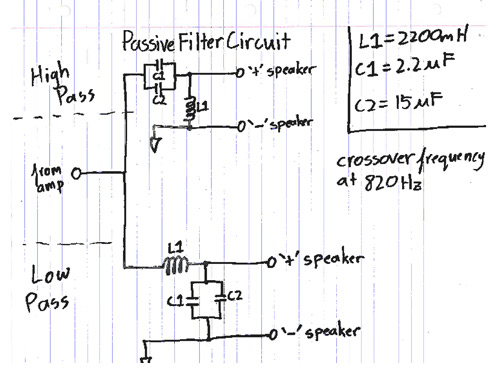 Passive Filter Circuit
L1 = 2200mH
C1 = 2.2uF
C2 = 15uF
crossover frequency
at 820Hz
High
Pass
C1
C2
L1
O "+" speaker
O "-" speaker
from
amp
Low
Pass
L1
C1
C2
O "+" speaker
O "-" speaker